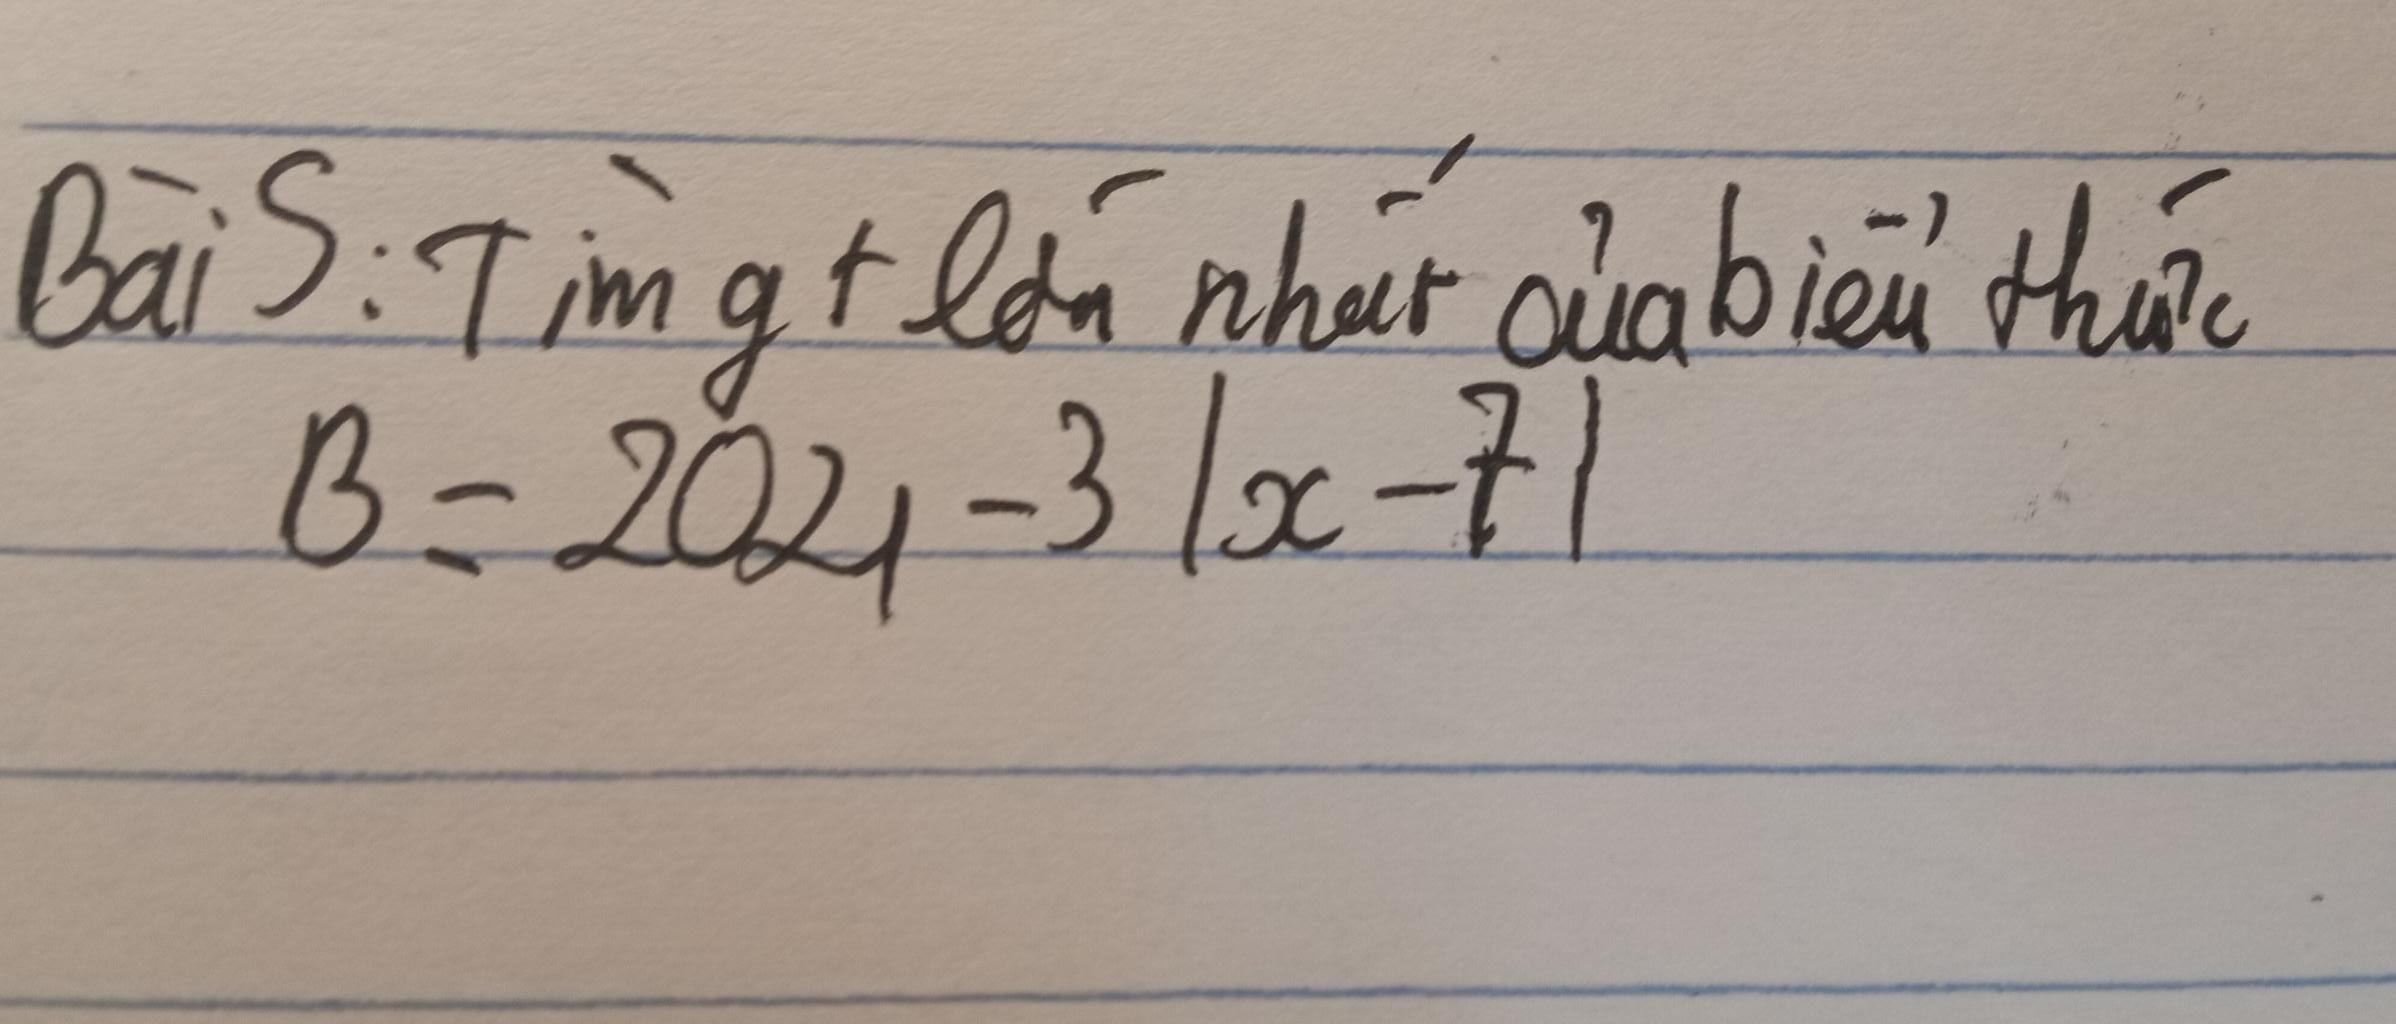 Bài 5: Tìm gt lớn nhất của biểu thức
B = 2021 - 3 |x - 7|